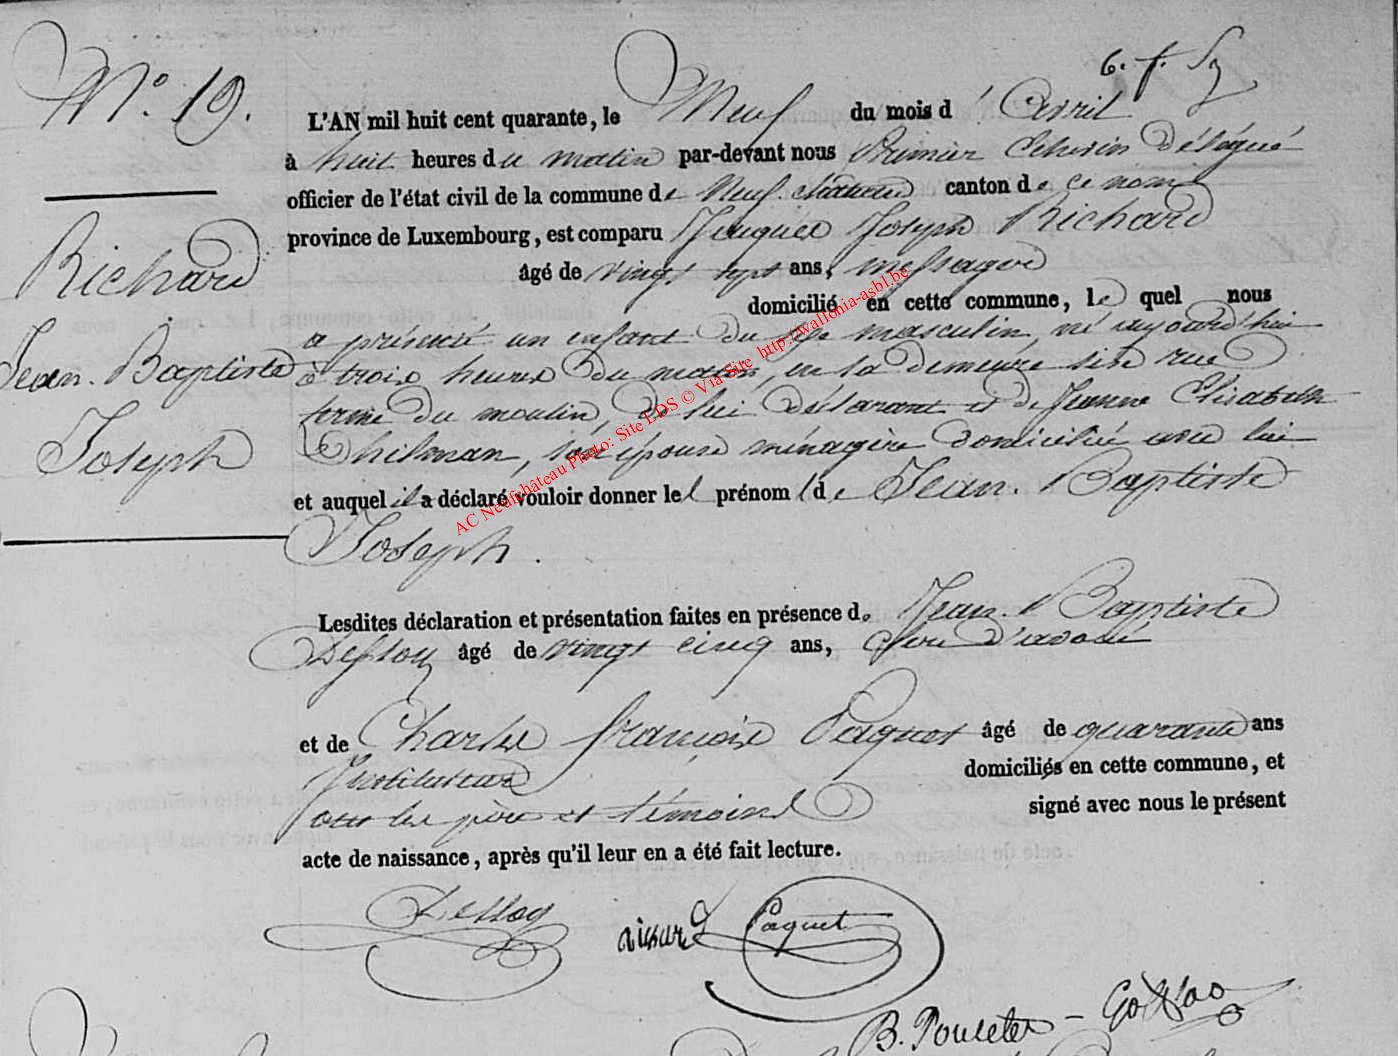 N° 19.
L'AN mil huit cent quarante, le Neuf du mois d'avril
à huit heures du matin par-devant nous Premier Echevin délégué
officier de l'état civil de la commune de Neufchateau canton de ce nom
province de Luxembourg, est comparu Hugues Joseph Richard
âgé de vingt sept ans, messager
domicilié en cette commune, lequel nous
a présenté un enfant du sexe masculin, né aujourd'hui
à trois heures du matin, en sa demeure sise rue
du moulin, de lui déclarant et de Jeanne Elisabeth
Thilman, son épouse ménagère domiciliée avec lui
et auquel il a déclaré vouloir donner le prénom de Jean-Baptiste
Joseph.
Richard
Jean-Baptiste
Joseph
Lesdites déclaration et présentation faites en présence de Jean-Baptiste
âgé de vingt cinq ans, clerc d'avoué
et de Charles François Paquet âgé de quarante ans
Instituteur domiciliés en cette commune, et
ont les père et témoins signé avec nous le présent
acte de naissance, après qu'il leur en a été fait lecture.
Paquet
AC Neufchâteau Photo: Site LDS © Via Site http://wallonia-asbl.be